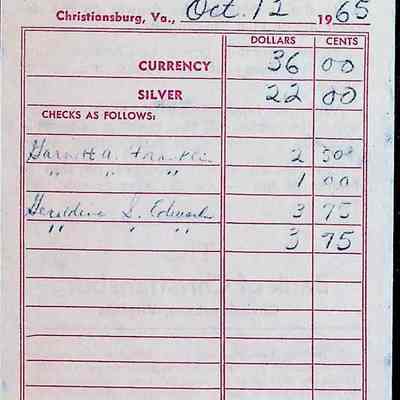 Christiansburg, Va., Oct. 12 1965
DOLLARS CENTS
CURRENCY 36 00
SILVER 22 00
CHECKS AS FOLLOWS:
Garnett A. Franklin 2 50
" " " 1 00
Geraldine S. Edwards 3 75
" " " 3 75